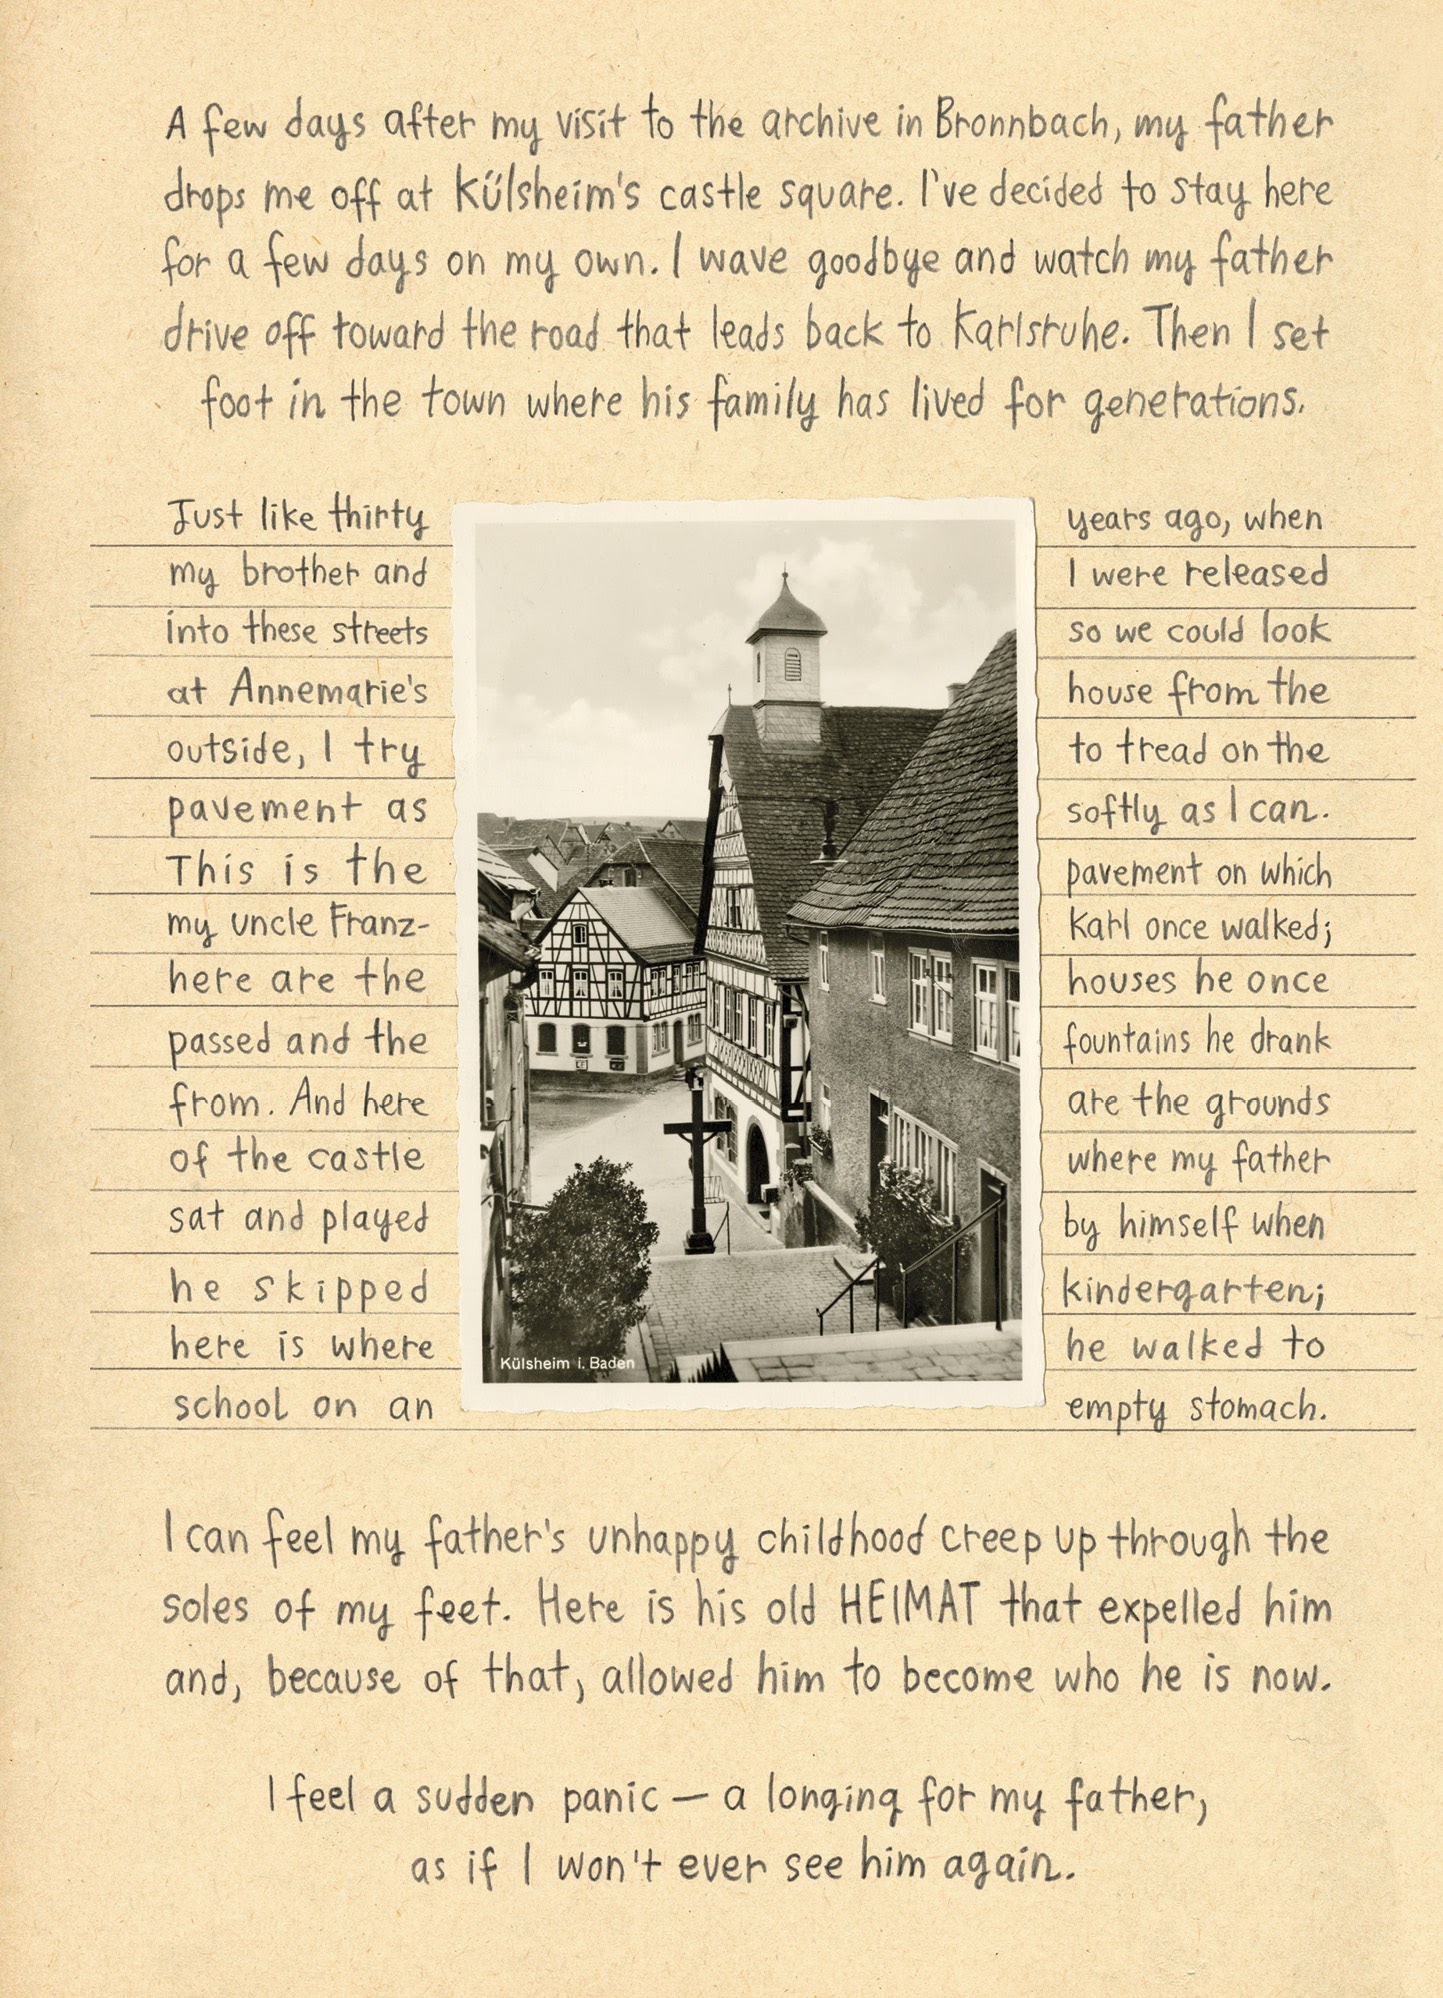 A few days after my visit to the archive in Bronnbach, my father
drops me off at Külsheim's castle square. I've decided to stay here
for a few days on my own. I wave goodbye and watch my father
drive off toward the road that leads back to Karlsruhe. Then I set
foot in the town where his family has lived for generations.
Just like thirty years ago, when
my brother and I were released
into these streets so we could look
at Annemarie's house from the
outside, I try to tread on the
pavement as softly as I can.
This is the pavement on which
my uncle Franz- Karl once walked;
here are the houses he once
passed and the fountains he drank
from. And here are the grounds
of the castle where my father
sat and played by himself when
he skipped kindergarten;
here is where he walked to
school on an empty stomach.
Külsheim i. Baden
I can feel my father's unhappy childhood creep up through the
soles of my feet. Here is his old HEIMAT that expelled him
and, because of that, allowed him to become who he is now.
I feel a sudden panic — a longing for my father,
as if I won't ever see him again.